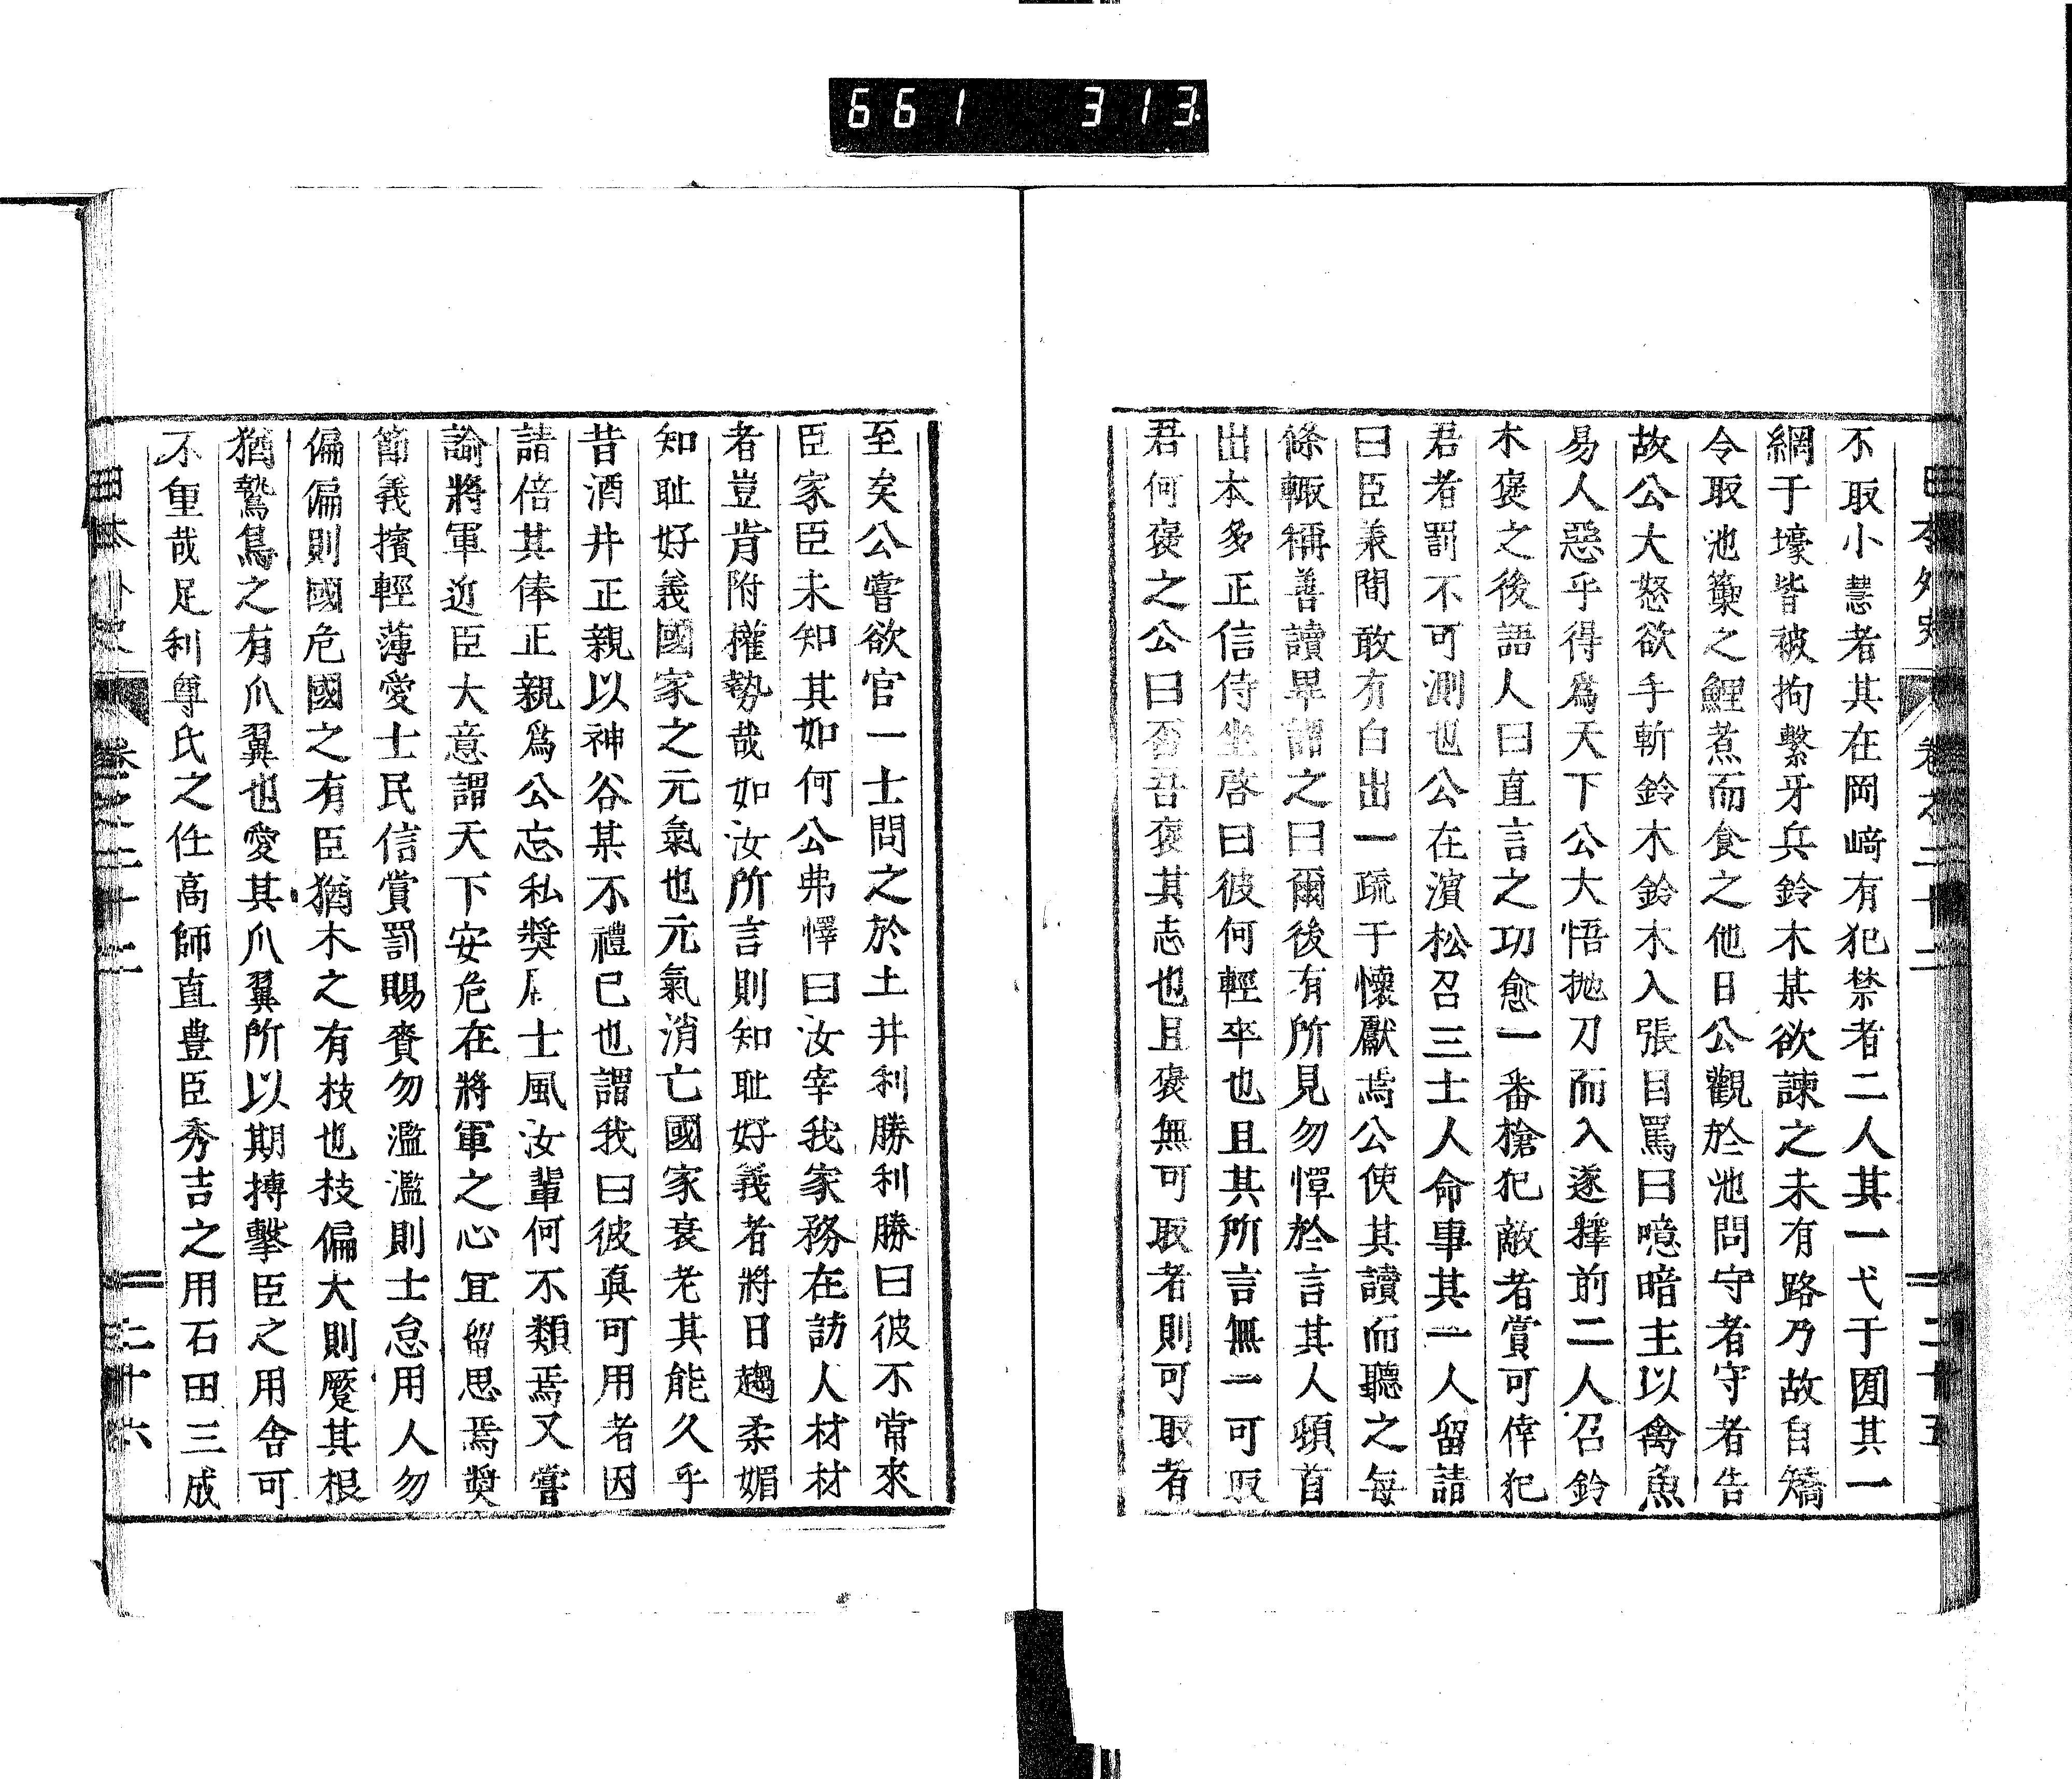 661 313
日本外史 卷之二十二 二十五
不取小慧者其在岡﨑有犯禁者二人其一弋于囿其一
網于壕皆被拘繫牙兵鈴木某欲諫之未有路乃故自矯
令取池籞之鯉煮而食之他日公觀於池問守者守者告
故公大怒欲手斬鈴木鈴木入張目罵曰噫暗主以禽魚
易人惡乎得爲天下公大悟抛刀而入遂釋前二人召鈴
木褒之後語人曰直言之功愈一番槍犯敵者賞可倖犯
君者罰不可測也公在濱松召三士人命事其一人留請
曰臣乘間敢有白出一疏于懷獻焉公使其讀而聽之每
條輙稱善讀畢謂之曰爾後有所見勿憚於言其人頓首
出本多正信侍坐啓曰彼何輕卒也且其所言無一可取
君何褒之公曰否吾褒其志也且褒無可取者則可取者
至矣公嘗欲官一士問之於土井利勝利勝曰彼不常來
臣家臣未知其如何公弗懌曰汝宰我家務在訪人材材
者豈肯附權勢哉如汝所言則知耻好義者將日趨柔媚
知耻好義國家之元氣也元氣消亡國家衰老其能久乎
昔酒井正親以神谷某不禮已也謂我曰彼眞可用者因
請倍其俸正親爲公忘私奬厲士風汝輩何不類焉又嘗
論將軍近臣大意謂天下安危在將軍之心宜留思焉奬
節義擯輕薄愛士民信賞罰賜賚勿濫濫則士怠用人勿
偏偏則國危國之有臣猶木之有枝也枝偏大則蹷其根
猶鷙鳥之有爪翼也愛其爪翼所以期搏擊臣之用舍可
不重哉足利尊氏之任高師直豊臣秀吉之用石田三成
日本外史 卷之二十二 二十六